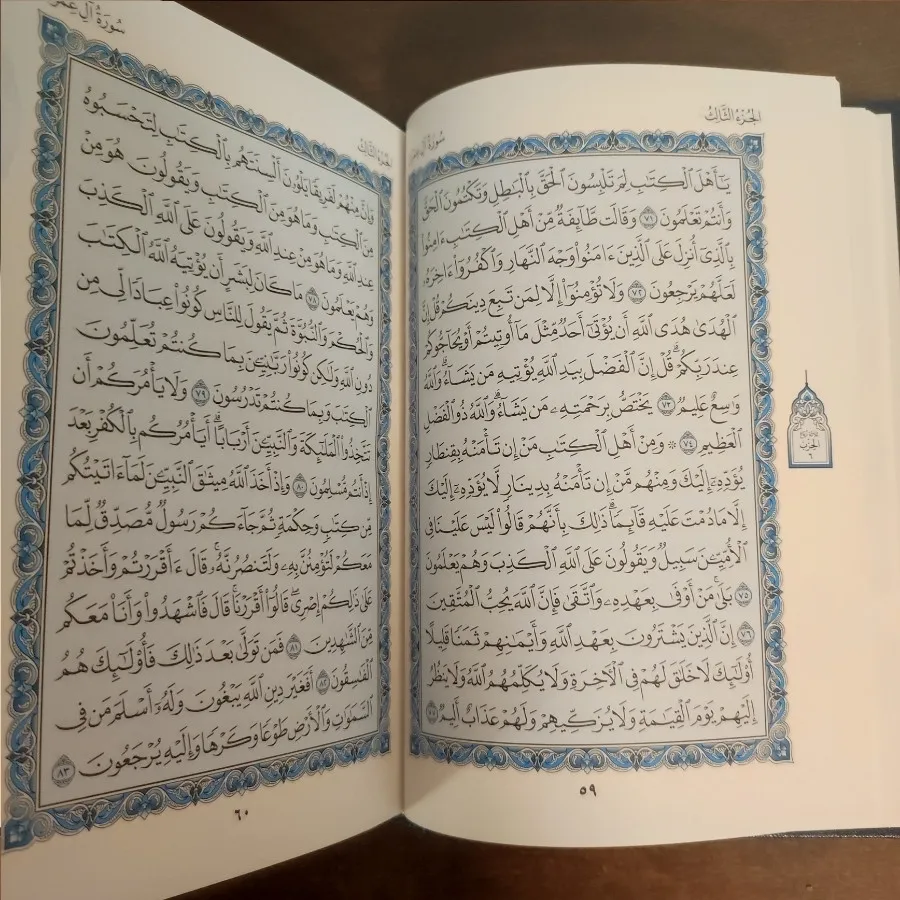 الجزء الثالث
سورة آل عمران
يَٰٓأَهْلَ ٱلْكِتَٰبِ لِمَ تَلْبِسُونَ ٱلْحَقَّ بِٱلْبَٰطِلِ وَتَكْتُمُونَ ٱلْحَقَّ
وَأَنتُمْ تَعْلَمُونَ ٧١ وَقَالَت طَّآئِفَةٌ مِّنْ أَهْلِ ٱلْكِتَٰبِ ءَامِنُوا۟
بِٱلَّذِىٓ أُنزِلَ عَلَى ٱلَّذِينَ ءَامَنُوا۟ وَجْهَ ٱلنَّهَارِ وَٱكْفُرُوٓا۟ ءَاخِرَهُۥ
لَعَلَّهُمْ يَرْجِعُونَ ٧٢ وَلَا تُؤْمِنُوٓا۟ إِلَّا لِمَن تَبِعَ دِينَكُمْ قُلْ إِنَّ
ٱلْهُدَىٰ هُدَى ٱللَّهِ أَن يُؤْتَىٰٓ أَحَدٌ مِّثْلَ مَآ أُوتِيتُمْ أَوْ يُحَآجُّوكُمْ
عِندَ رَبِّكُمْ ۗ قُلْ إِنَّ ٱلْفَضْلَ بِيَدِ ٱللَّهِ يُؤْتِيهِ مَن يَشَآءُ ۗ وَٱللَّهُ
وَٰسِعٌ عَلِيمٌ ٧٣ يَخْتَصُّ بِرَحْمَتِهِۦ مَن يَشَآءُ ۗ وَٱللَّهُ ذُو ٱلْفَضْلِ
ٱلْعَظِيمِ ٧٤ ۞ وَمِنْ أَهْلِ ٱلْكِتَٰبِ مَنْ إِن تَأْمَنْهُ بِقِنطَارٍ
يُؤَدِّهِۦٓ إِلَيْكَ وَمِنْهُم مَّنْ إِن تَأْمَنْهُ بِدِينَارٍ لَّا يُؤَدِّهِۦٓ إِلَيْكَ
إِلَّا مَا دُمْتَ عَلَيْهِ قَآئِمًا ۗ ذَٰلِكَ بِأَنَّهُمْ قَالُوا۟ لَيْسَ عَلَيْنَا فِى
ٱلْأُمِّيِّـۧنَ سَبِيلٌ وَيَقُولُونَ عَلَى ٱللَّهِ ٱلْكَذِبَ وَهُمْ يَعْلَمُونَ
٧٥ بَلَىٰ مَنْ أَوْفَىٰ بِعَهْدِهِۦ وَٱتَّقَىٰ فَإِنَّ ٱللَّهَ يُحِبُّ ٱلْمُتَّقِينَ
٧٦ إِنَّ ٱلَّذِينَ يَشْتَرُونَ بِعَهْدِ ٱللَّهِ وَأَيْمَٰنِهِمْ ثَمَنًا قَلِيلًا
أُو۟لَٰٓئِكَ لَا خَلَٰقَ لَهُمْ فِى ٱلْءَاخِرَةِ وَلَا يُكَلِّمُهُمُ ٱللَّهُ وَلَا يَنظُرُ
إِلَيْهِمْ يَوْمَ ٱلْقِيَٰمَةِ وَلَا يُزَكِّيهِمْ وَلَهُمْ عَذَابٌ أَلِيمٌ ٧٧
٥٩
الجزء الثالث
سورة آل عمر
وَإِنَّ مِنْهُمْ لَفَرِيقًا يَلْوُۥنَ أَلْسِنَتَهُم بِٱلْكِتَٰبِ لِتَحْسَبُوهُ
مِنَ ٱلْكِتَٰبِ وَمَا هُوَ مِنَ ٱلْكِتَٰبِ وَيَقُولُونَ هُوَ مِنْ
عِندِ ٱللَّهِ وَمَا هُوَ مِنْ عِندِ ٱللَّهِ وَيَقُولُونَ عَلَى ٱللَّهِ ٱلْكَذِبَ
وَهُمْ يَعْلَمُونَ ٧٨ مَا كَانَ لِبَشَرٍ أَن يُؤْتِيَهُ ٱللَّهُ ٱلْكِتَٰبَ
وَٱلْحُكْمَ وَٱلنُّبُوَّةَ ثُمَّ يَقُولَ لِلنَّاسِ كُونُوا۟ عِبَادًا لِّى مِن
دُونِ ٱللَّهِ وَلَٰكِن كُونُوا۟ رَبَّٰنِيِّـۧنَ بِمَا كُنتُمْ تُعَلِّمُونَ
ٱلْكِتَٰبَ وَبِمَا كُنتُمْ تَدْرُسُونَ ٧٩ وَلَا يَأْمُرَكُمْ أَن
تَتَّخِذُوا۟ ٱلْمَلَٰٓئِكَةَ وَٱلنَّبِيِّـۧنَ أَرْبَابًا ۗ أَيَأْمُرُكُم بِٱلْكُفْرِ بَعْدَ
إِذْ أَنتُم مُّسْلِمُونَ ٨٠ وَإِذْ أَخَذَ ٱللَّهُ مِيثَٰقَ ٱلنَّبِيِّـۧنَ لَمَآ ءَاتَيْتُكُم
مِّن كِتَٰبٍ وَحِكْمَةٍ ثُمَّ جَآءَكُمْ رَسُولٌ مُّصَدِّقٌ لِّمَا
مَعَكُمْ لَتُؤْمِنُنَّ بِهِۦ وَلَتَنصُرُنَّهُۥ ۚ قَالَ ءَأَقْرَرْتُمْ وَأَخَذْتُمْ
عَلَىٰ ذَٰلِكُمْ إِصْرِى ۖ قَالُوٓا۟ أَقْرَرْنَا ۚ قَالَ فَٱشْهَدُوا۟ وَأَنَا۠ مَعَكُم
مِّنَ ٱلشَّٰهِدِينَ ٨١ فَمَن تَوَلَّىٰ بَعْدَ ذَٰلِكَ فَأُو۟لَٰٓئِكَ هُمُ
ٱلْفَٰسِقُونَ ٨٢ أَفَغَيْرَ دِينِ ٱللَّهِ يَبْغُونَ وَلَهُۥٓ أَسْلَمَ مَن فِى
ٱلسَّمَٰوَٰتِ وَٱلْأَرْضِ طَوْعًا وَكَرْهًا وَإِلَيْهِ يُرْجَعُونَ ٨٣
٦٠